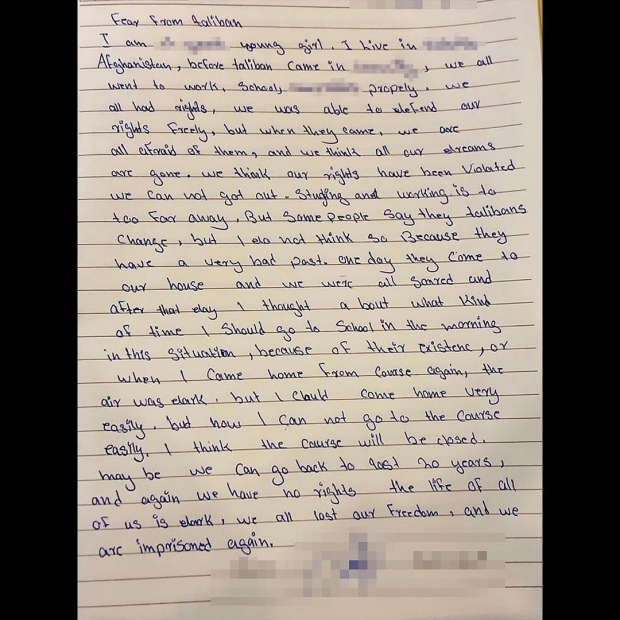 Fear From taliban
I am young girl. I Live in
Afghanistan, before taliban came in , we all
went to work, School, propely. we
all had rights, we was able to defend our
rights Freely, but when they came, we are
all afraid of them, and we think all our dreams
are gone. we think our rights have been Violated
we can not got out. Studing and working is to
too far away, But Some People Say they talibans
Change, but I do not think so Because they
have a very bad past. one day they Come to
our house and we were all Scared and
after that day I thought a bout what Kind
of time I Should go to School in the morning
in this Situation, because of their existenc, or
when I Came home From Course again, the
air was dark. but I Could come home very
easily. but now I can not go to the Course
easily. I think the Course will be closed.
may be we can go back to last 20 years,
and again we have no rights the life of all
of us is dark, we all lost our Freedom, and we
are imprisoned again.